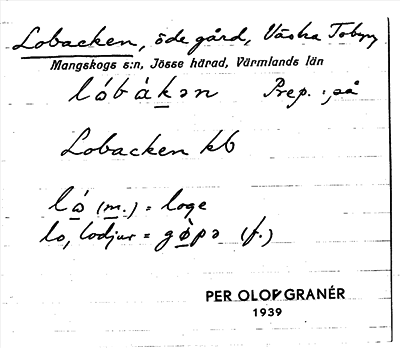 Lobacken, öde gård, Västra Tobyn
Mangskogs s:n, Jösse härad, Värmlands län
lǻbàkən Prep. : på
Lobacken kb
lǻ (m.) = loge
lo, lodjur = gǿpə (f.)
PER OLOF GRANÉR
1939